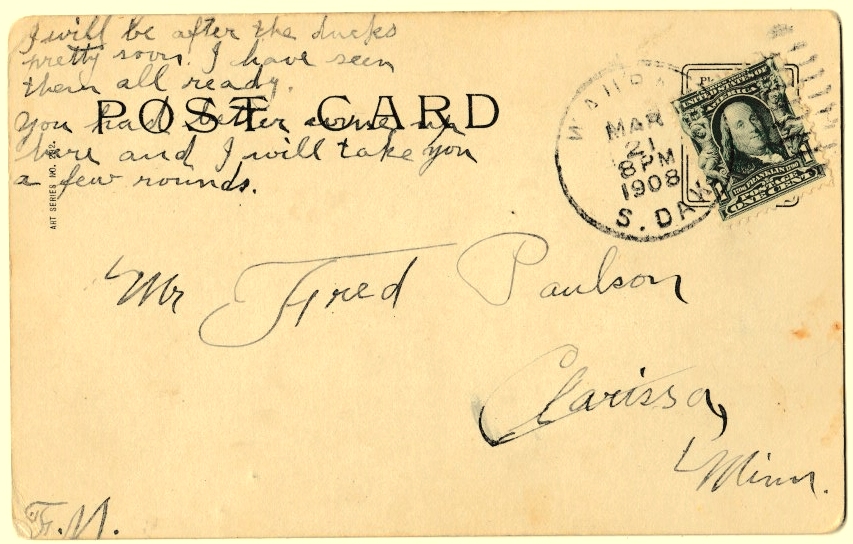 I will be after the ducks
pretty soon. I have seen
them all ready.
POST CARD
You had better come up
here and I will take you
a few rounds.
ART SERIES NO. 292.
WAUBAY
MAR
21
8 PM
1908
S. DAK.
UNITED STATES OF
AMERICA
FRANKLIN
POSTAGE
ONE CENT
Mr Fred Paulson
Clarissa,
Minn.
F. M.